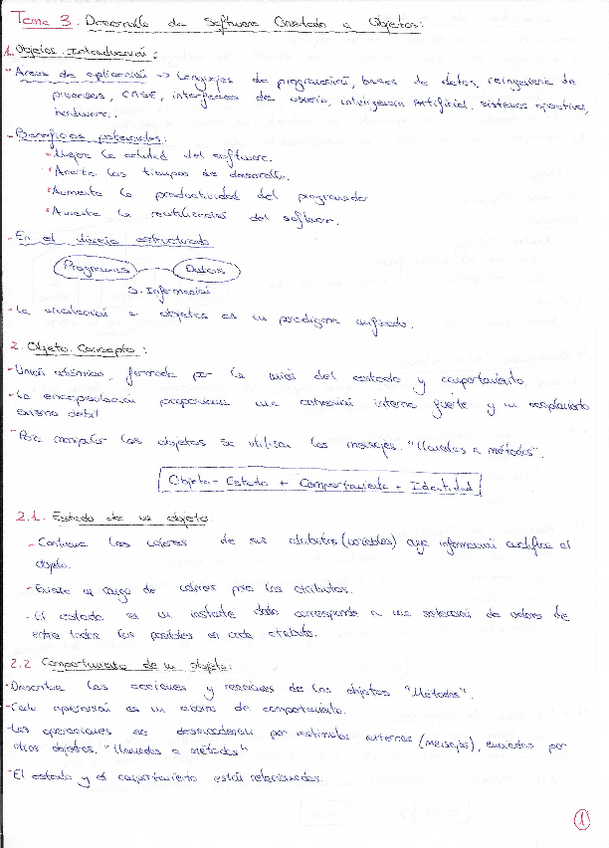 Tema 3. Desarrollo de Software Orientado a Objetos:
1. Objetos. Introducción:
- Areas de aplicación -> Lenguajes de programación, bases de datos, reingeniería de
procesos, CASE, interfaces de usuario, inteligencia Artificial, sistemas operativos,
hardware..
- Beneficios potenciales:
- Mejora la calidad del software.
- Acorta los tiempos de desarrollo.
- Aumenta la productividad del programador
- Aumenta la reutilización del software.
- En el diseño estructurado
Programas --- Datos
S. Información
- La orientación a objetos es un paradigma unificado.
2. Objeto. Concepto:
- Unidad atómica, formada por la unión del estado y comportamiento
- La encapsulación proporciona una cohesión interna fuerte y un acoplamiento
externo débil
- Para manipular los objetos se utilizan los mensajes. "llamadas a métodos".
Objeto = Estado + Comportamiento + Identidad
2.1. Estado de un objeto:
- Contiene los valores de sus atributos (variables) cuya información cualifica el
objeto.
- Existe un rango de valores para los atributos.
- El estado en un instante dado corresponde a una selección de valores de
entre todos los posibles en cada atributo.
2.2 Comportamiento de un objeto:
- Describe las acciones y reacciones de los objetos "Métodos".
- Cada operación es un átomo de comportamiento.
- Las operaciones se desencadenan por estímulos externos (mensajes), enviados por
otros objetos. "llamadas a métodos"
- El estado y el comportamiento están relacionados.
1